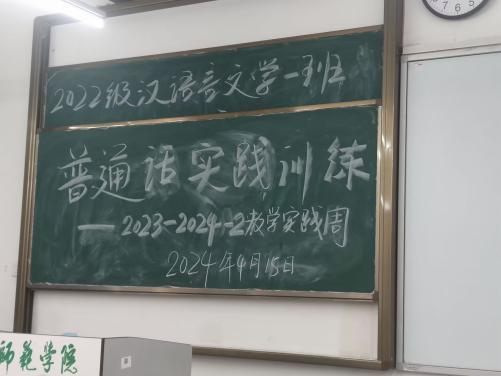 2022级汉语言文学一班
普通话实践训练
——2023-2024-2教学实践周
2024年4月15日
师范学院